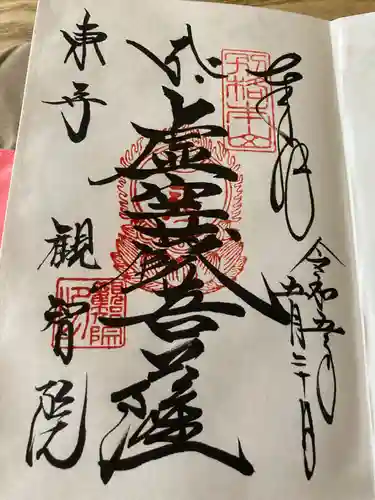 奉拝
令和五年
五月二十一日
虚空蔵菩薩
東寺
観智院